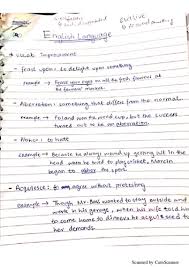 English Language
visual Improvement
- feast your eyes to delight upon something
example → Feast your eyes on all the fresh flowers at the farmers' market.
- Aberration: something that differs from the normal.
example → Poland won the world cup, but the success turned out to be an aberration.
: to hate
example → Because he always wound up getting all in the head when he tried to play cricket, Marvin began to abhor the sport.
- Acquiesce: to agree without protesting
example → Though Mr. wanted to stay outside and work in his garage, when his wife told him to come home to dinner he acquiesced to her demands.
Scanned by CamScanner